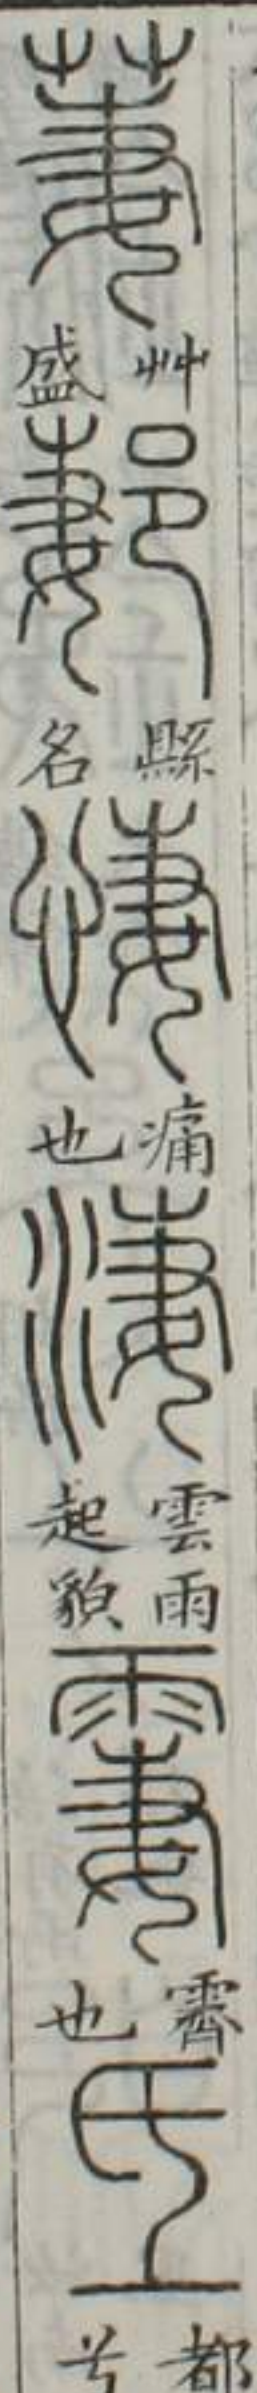 萋艸盛郪縣名悽痛也淒雲雨起貌霋霽也氐都兮